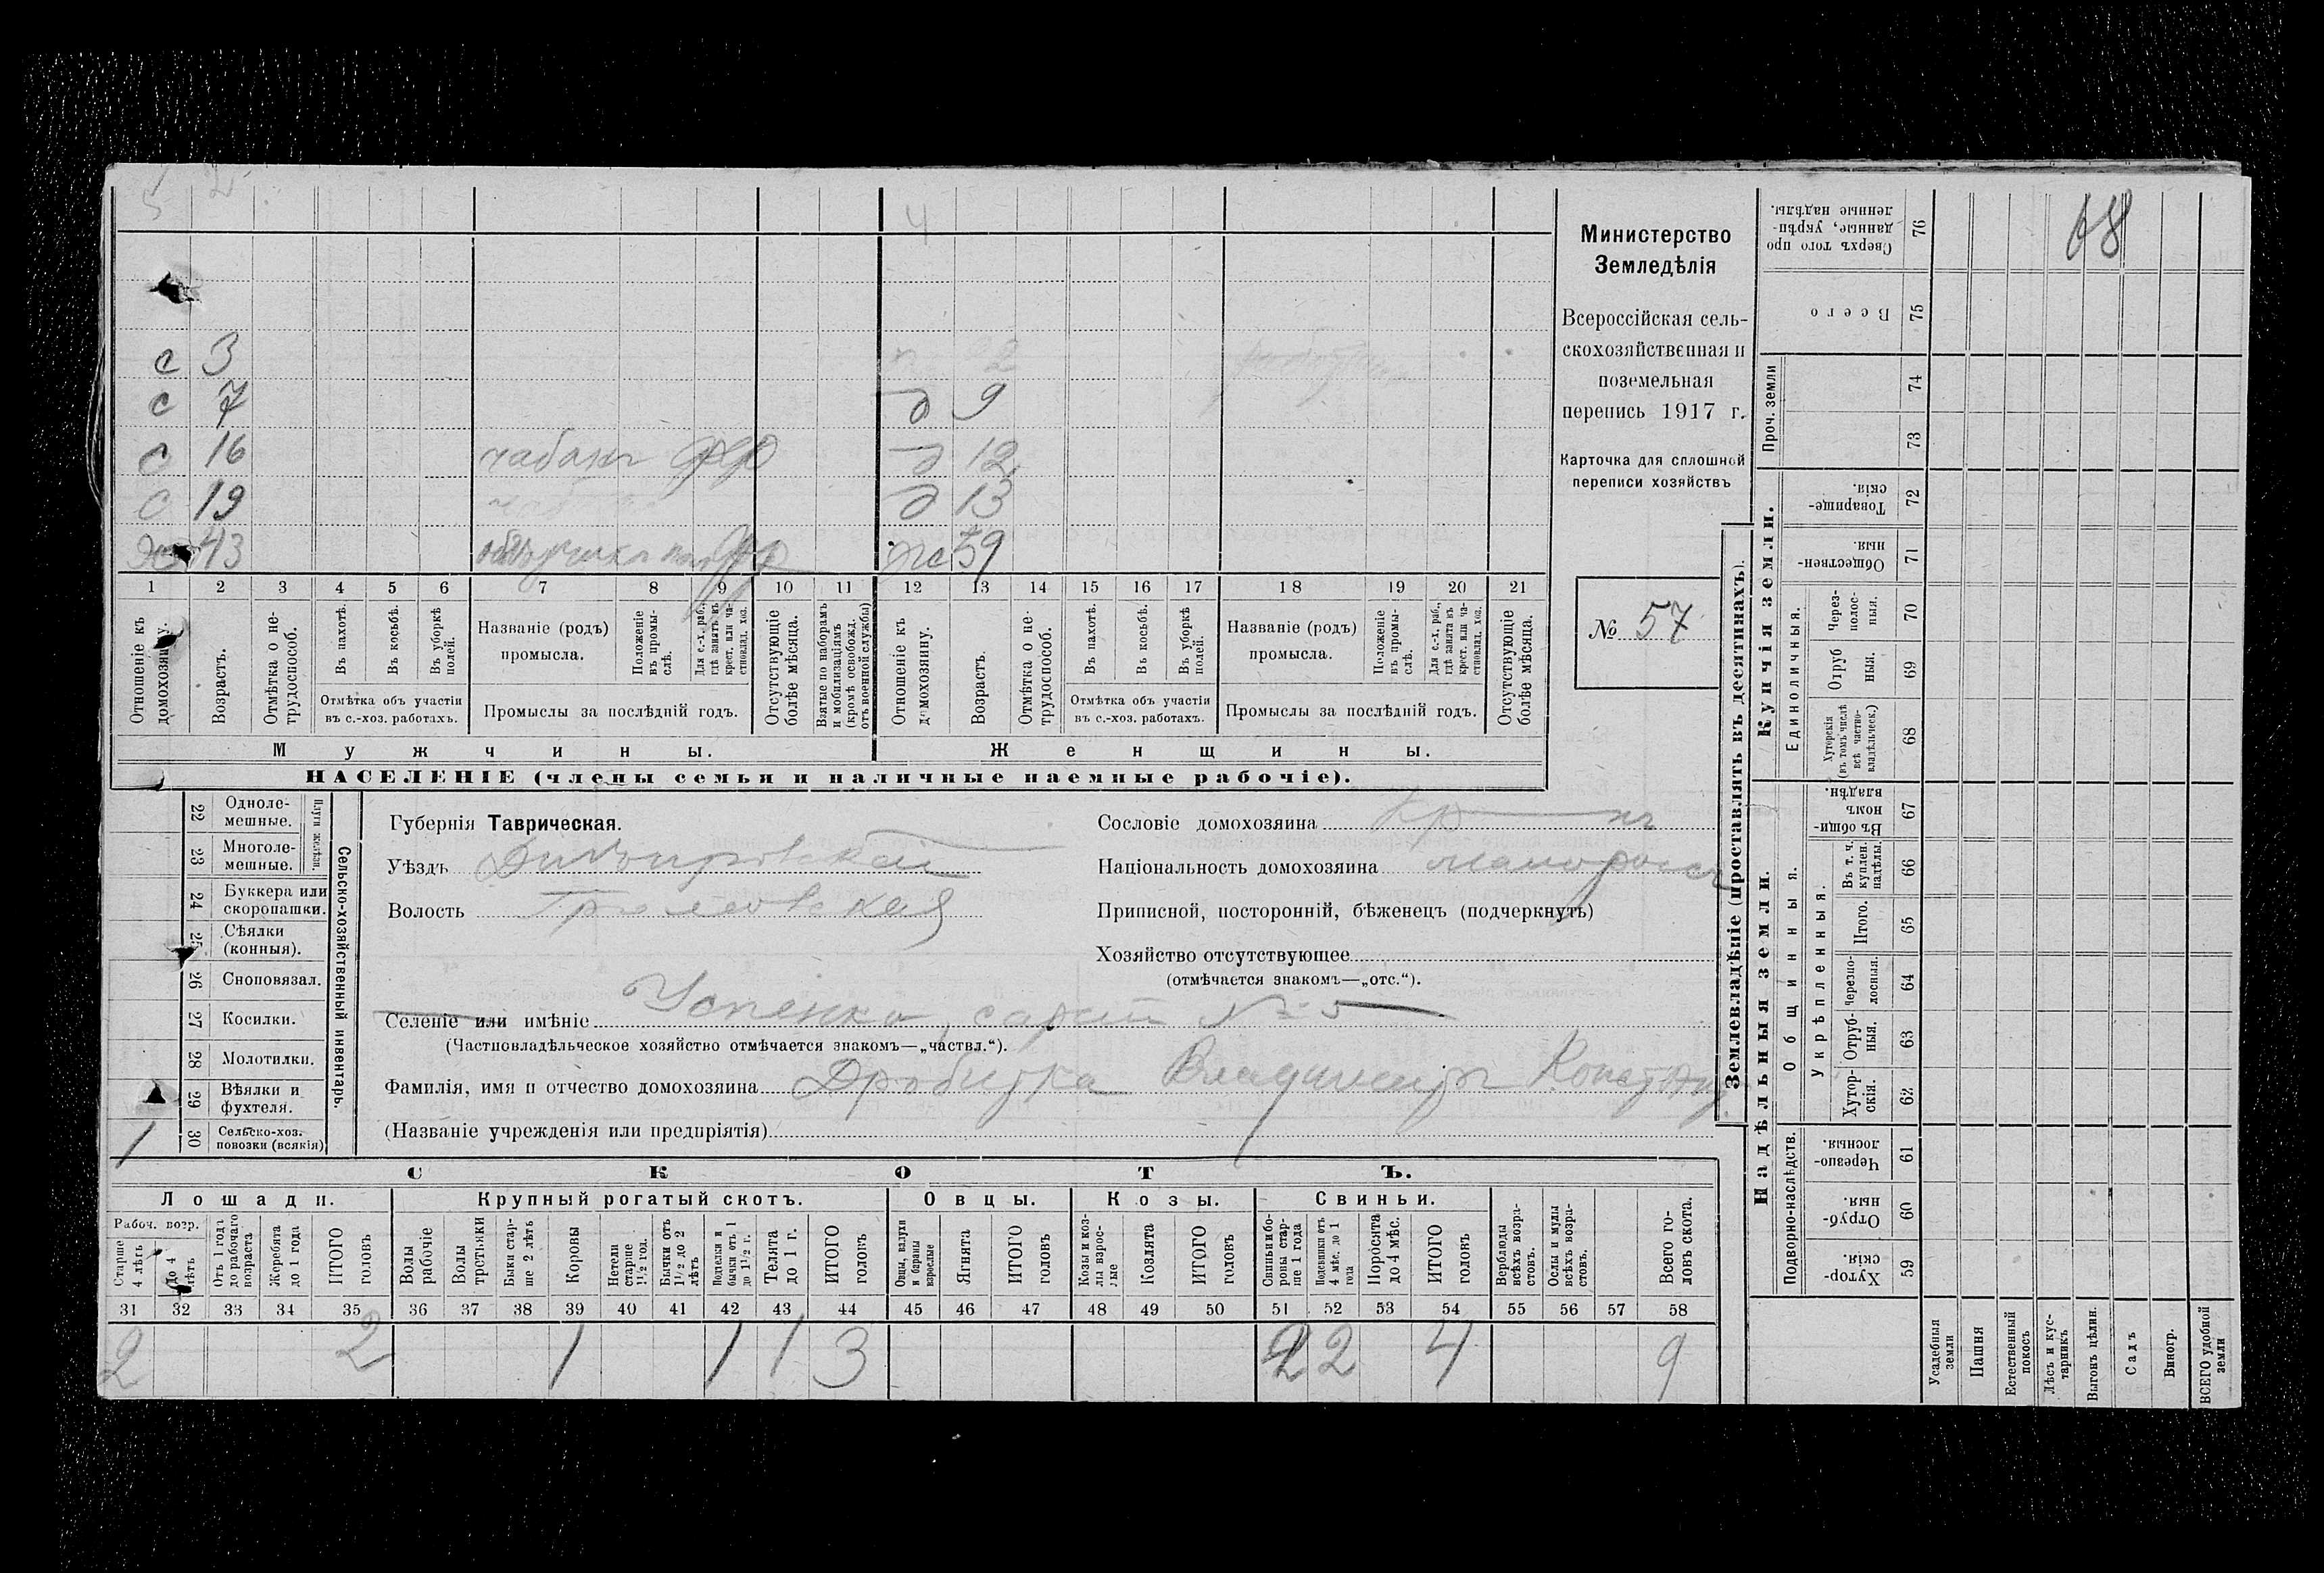 5 2
4
с 3
с 7 д 9
с 16 чабанъ д 12
с 19 д 13
43 ж 39
1 2 3 4 5 6 7 8 9 10 11 12 13 14 15 16 17 18 19 20 21
Отношеніе къ домохозяину.
Возрастъ.
Отмѣтка о нетрудоспособ.
Въ пахотѣ.
Въ косьбѣ.
Въ уборкѣ полей.
Отмѣтка объ участіи въ с.-хоз. работахъ.
Названіе (родъ) промысла.
Положеніе въ промыслѣ.
Для с.-х. раб., гдѣ занятъ въ крест. или частновлад. хоз.
Промыслы за послѣдній годъ.
Отсутствующіе болѣе мѣсяца.
Взятые по наборамъ и мобилизаціямъ (кромѣ освобожд. отъ военной службы)
Отношеніе къ домохозяину.
Возрастъ.
Отмѣтка о нетрудоспособ.
Въ пахотѣ.
Въ косьбѣ.
Въ уборкѣ полей.
Отмѣтка объ участіи въ с.-хоз. работахъ.
Названіе (родъ) промысла.
Положеніе въ промыслѣ.
Для с.-х. раб., гдѣ занята въ крест. или частновлад. хоз.
Промыслы за послѣдній годъ.
Отсутствующіе болѣе мѣсяца.
Мужчины. Женщины.
НАСЕЛЕНІЕ (члены семьи и наличные наемные рабочіе).
Министерство
Земледѣлія
Всероссійская сель-
скохозяйственная и
поземельная
перепись 1917 г.
Карточка для сплошной
переписи хозяйствъ
№ 57
22 Одноле-мешные.
23 Многоле-мешные.
Плуги желѣзн.
24 Буккера или скоропашки.
25 Сѣялки (конныя).
26 Сноповязал.
27 Косилки.
28 Молотилки.
29 Вѣялки и фухтеля.
1 30 Сельско-хоз. повозки (всякія)
Сельско-хозяйственный инвентарь.
Губернія Таврическая.
Уѣздъ Днѣпровскій
Волость
Селеніе или имѣніе Успенка, сарай № 5
(Частновладѣльческое хозяйство отмѣчается знакомъ—„частвл.“).
Фамилія, имя и отчество домохозяина Дробитка Владимиръ Констант.
(Названіе учрежденія или предпріятія)
Сословіе домохозяина кр—нъ
Національность домохозяина малороссъ
Приписной, посторонній, бѣженецъ (подчеркнуть)
Хозяйство отсутствующее
(отмѣчается знакомъ—„отс.“).
СКОТЪ.
Лошади. Крупный рогатый скотъ. Овцы. Козы. Свиньи.
Рабоч. возр.
Старше 4 лѣтъ
До 4 лѣтъ
Отъ 1 года до рабочаго возраста
Жеребята до 1 года
ИТОГО головъ
Волы рабочіе
Волы третьяки
Быки старше 2 лѣтъ
Коровы
Нетели старше 1½ год.
Бычки отъ 1½ до 2 лѣтъ
Подтелки и бычки отъ 1 до 1½ г.
Телята до 1 г.
ИТОГО головъ
Овцы, валухи и бараны взрослые
Ягнята
ИТОГО головъ
Козы и козлы взрослые
Козлята
ИТОГО головъ
Свиньи и боровы старше 1 года
Подсвинки отъ 4 мѣс. до 1 года
Поросята до 4 мѣс.
ИТОГО головъ
Верблюды всѣхъ возрастовъ.
Ослы и мулы всѣхъ возрастовъ.
Всего головъ скота.
31 32 33 34 35 36 37 38 39 40 41 42 43 44 45 46 47 48 49 50 51 52 53 54 55 56 57 58
2 2 1 1 1 3 2 2 4 9
Землевладѣніе (проставлять въ десятинахъ).
Купчія земли.
Надѣльныя земли.
Сверхъ того проданные, укрѣпленные надѣлы. 76
Всего 75
Проч. земли 74 73
Товарищескія. 72
Общественныя. 71
Единоличныя.
Черезполосныя. 70
Отрубныя. 69
Хуторскія (въ томъ числѣ всѣ частновладѣльческ.) 68
Общинныя.
Въ общинномъ владѣн. 67
Укрѣпленныя.
Въ т. ч. куплен. надѣлы. 66
Итого. 65
Черезполосныя. 64
Отрубныя. 63
Хуторскія. 62
Подворно-наслѣдств.
Черезполосныя. 61
Отрубныя. 60
Хуторскія. 59
Усадебныя земли
Пашня
Естественный покосъ
Лѣсъ и кустарникъ
Выгонъ цѣлин.
Садъ
Виногр.
ВСЕГО удобной земли